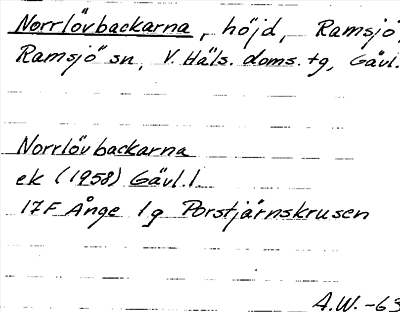 Norrlövbackarna, höjd, Ramsjö,
Ramsjö sn, V. Häls. doms. tg, Gävl.
Norrlövbackarna
ek (1958) Gävl. l
17F Ånge 1g Porstjärnskrusen
A.W. -63